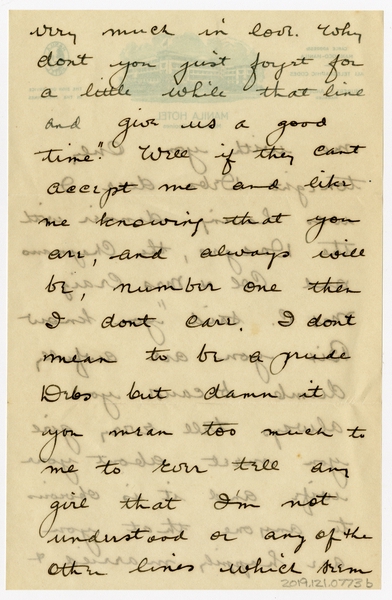 very much in love. Why
dont you just forget for
a little while that line
and give us a good
time." Well if they cant
accept me and like
me knowing that you
are, and always will
be, number one then
I dont care. I dont
mean to be a prude
Debs but damn it
you mean too much to
me to ever tell any
girl that I'm not
understood or any of the
other lines which seem
2019.121.0773b